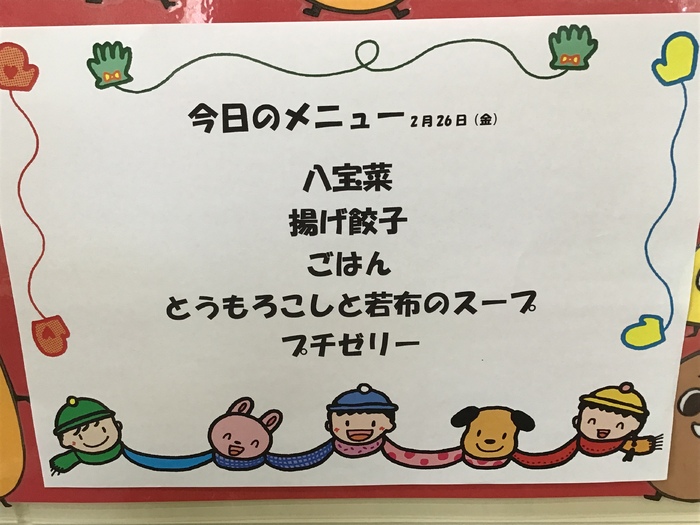 今日のメニュー 2月26日（金）
八宝菜
揚げ餃子
ごはん
とうもろこしと若布のスープ
プチゼリー